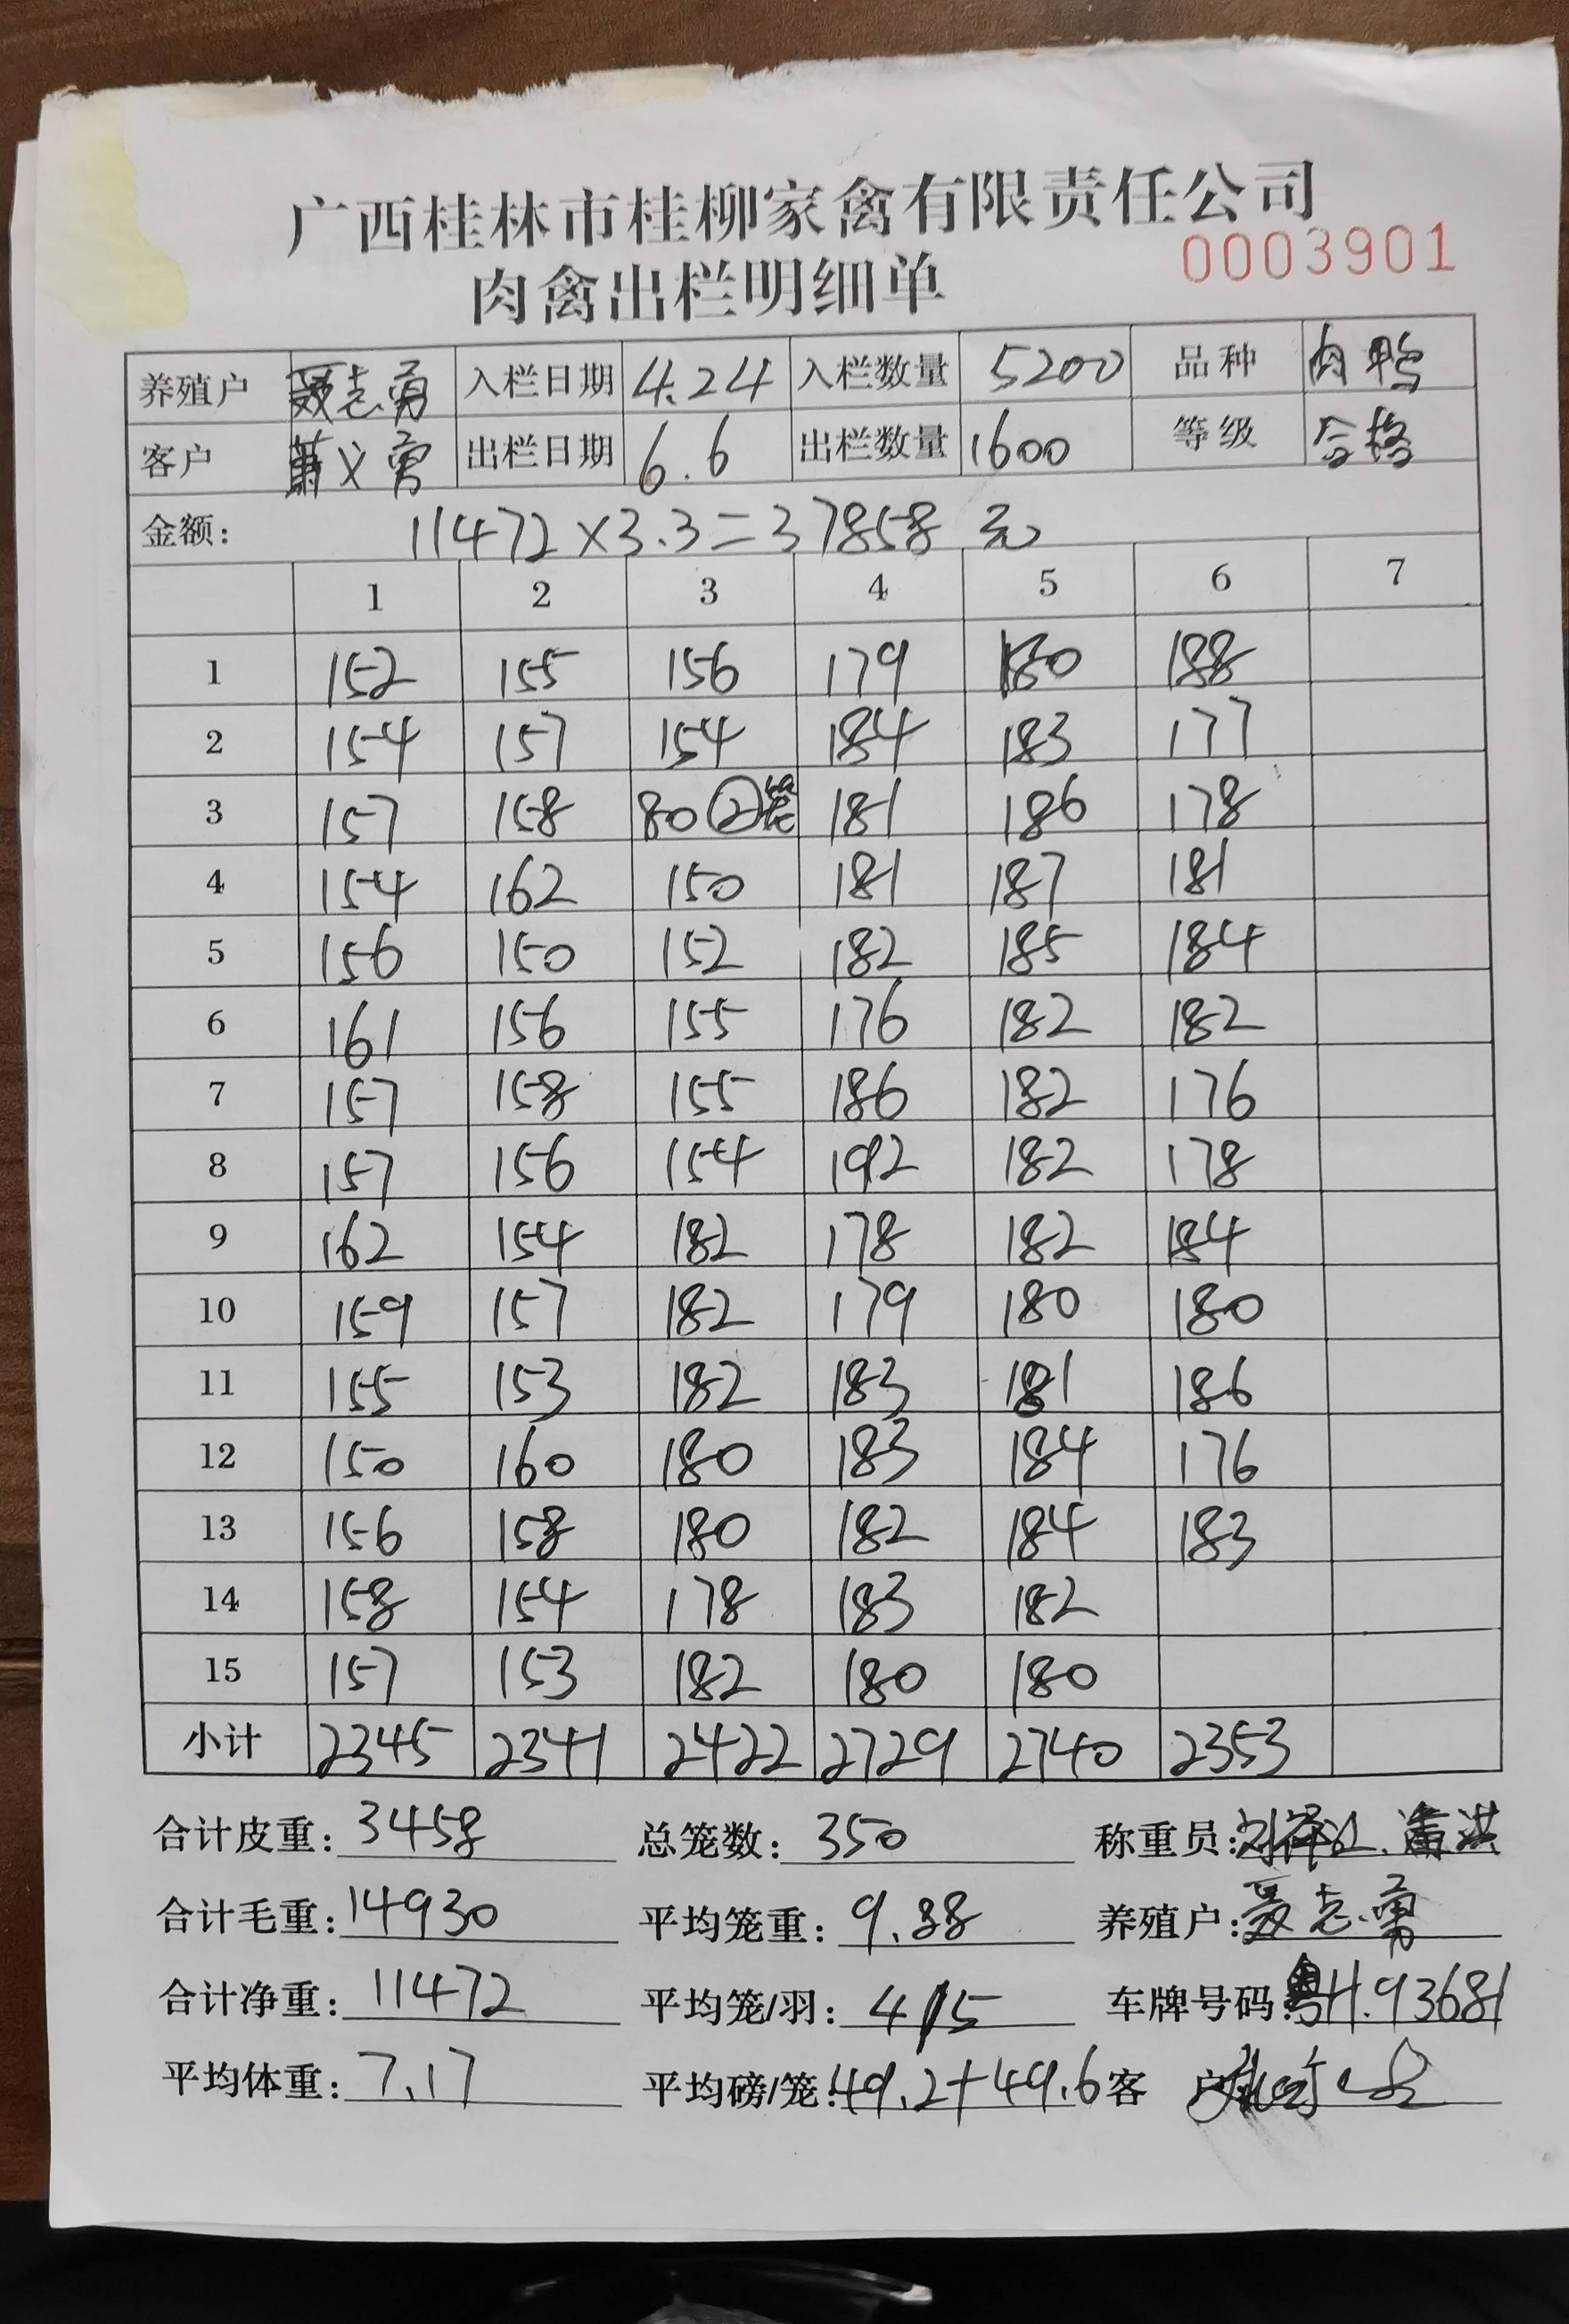 广西桂林市桂柳家禽有限责任公司
0003901
肉禽出栏明细单
养殖户 聂志勇 入栏日期 4.24 入栏数量 5200 品种 肉鸭
客户 萧义勇 出栏日期 6.6 出栏数量 1600 等级 合格
金额: 11472×3.3=37858 元
1 2 3 4 5 6 7
1 152 155 156 179 180 188
2 154 157 154 184 183 177
3 157 158 80 ②笼 181 186 178
4 154 162 150 181 187 181
5 156 150 152 182 185 184
6 161 156 155 176 182 182
7 157 158 155 186 182 176
8 157 156 154 192 182 178
9 162 154 182 178 182 184
10 159 157 182 179 180 180
11 155 153 182 183 181 186
12 150 160 180 183 184 176
13 156 158 180 182 184 183
14 158 154 178 183 182
15 157 153 182 180 180
小计 2345 2341 2422 2729 2740 2353
合计皮重: 3458 总笼数: 350 称重员:
合计毛重: 14930 平均笼重: 9.88 养殖户: 聂志勇
合计净重: 11472 平均笼/羽: 4/5 车牌号码: 粤H.93681
平均体重: 7.17 平均磅/笼: 49.2+49.6 客 户